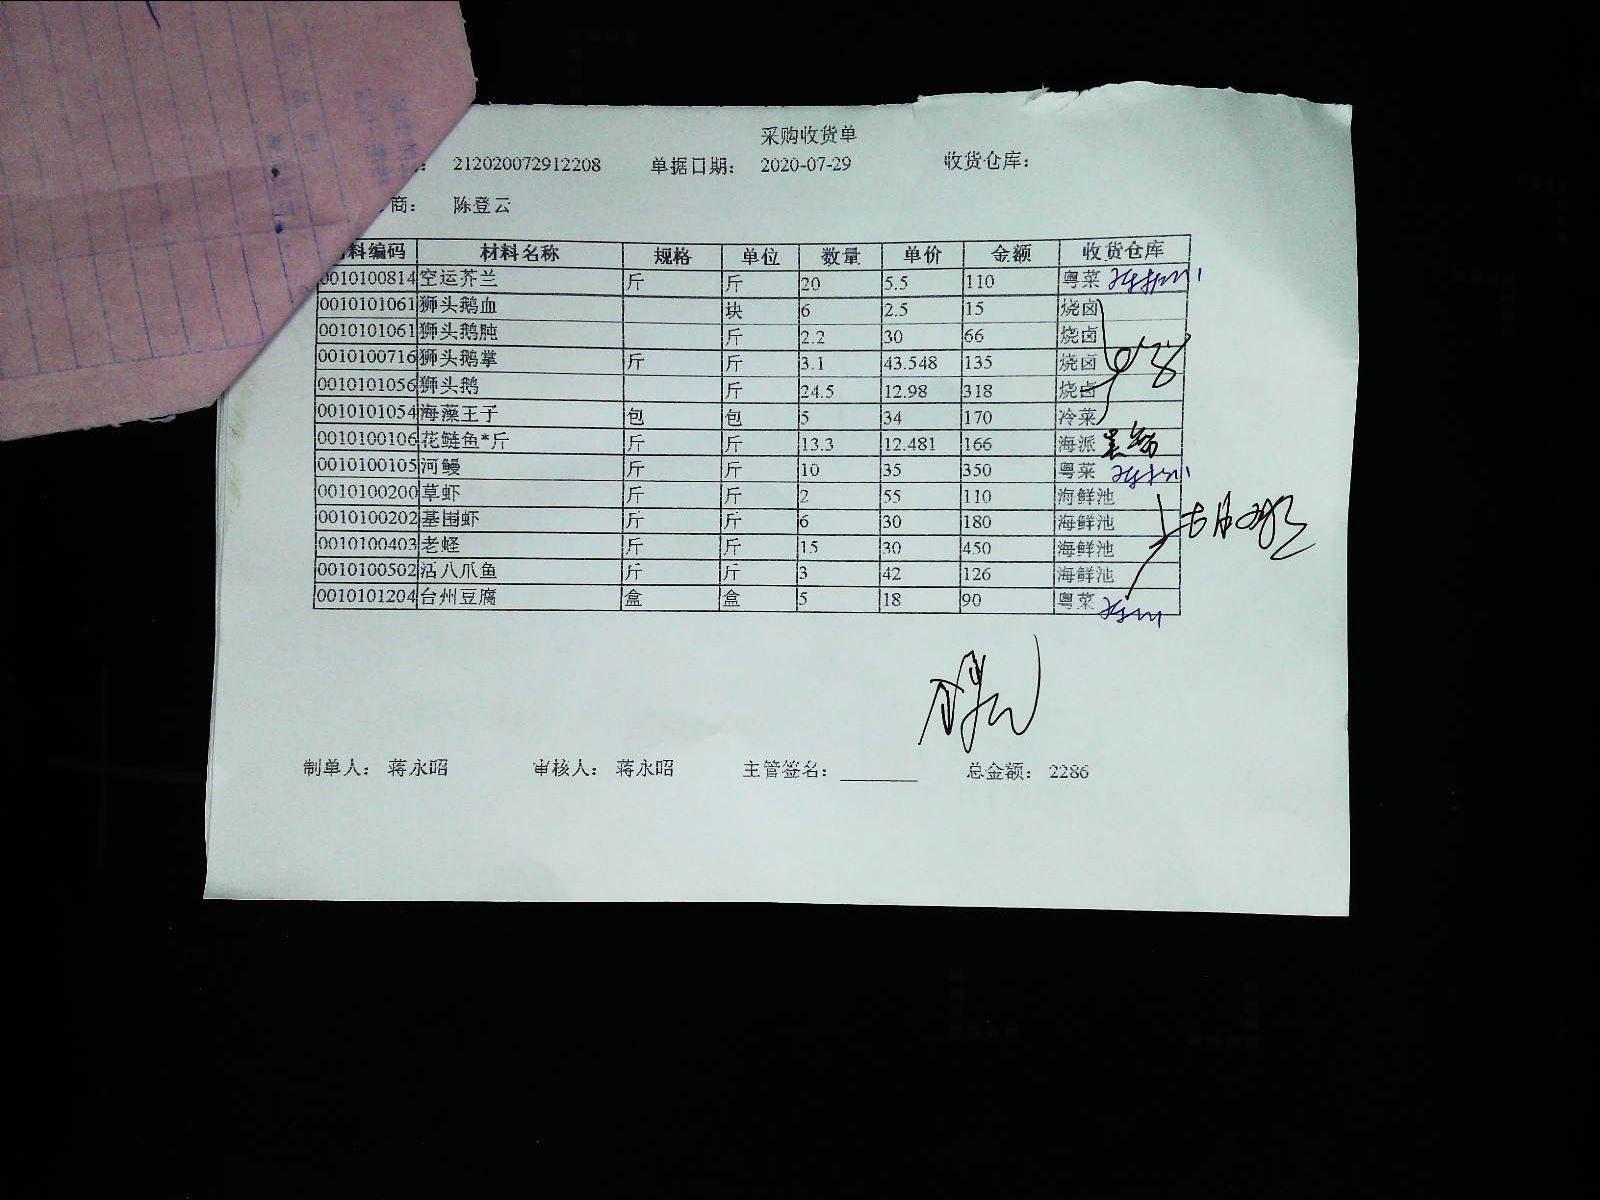 采购收货单
212020072912208 单据日期: 2020-07-29 收货仓库:
商: 陈登云
料编码 材料名称 规格 单位 数量 单价 金额 收货仓库
0010100814 空运芥兰 斤 斤 20 5.5 110 粤菜
0010101061 狮头鹅血 块 6 2.5 15 烧卤
0010101061 狮头鹅肫 斤 2.2 30 66 烧卤
0010100716 狮头鹅掌 斤 斤 3.1 43.548 135 烧卤
0010101056 狮头鹅 斤 24.5 12.98 318 烧卤
0010101054 海藻王子 包 包 5 34 170 冷菜
0010100106 花鲢鱼*斤 斤 斤 13.3 12.481 166 海派
0010100105 河鳗 斤 斤 10 35 350 粤菜
0010100200 草虾 斤 斤 2 55 110 海鲜池
0010100202 基围虾 斤 斤 6 30 180 海鲜池
0010100403 老蛏 斤 斤 15 30 450 海鲜池
0010100502 活八爪鱼 斤 斤 3 42 126 海鲜池
0010101204 台州豆腐 盒 盒 5 18 90 粤菜
制单人: 蒋永昭 审核人: 蒋永昭 主管签名: 总金额: 2286